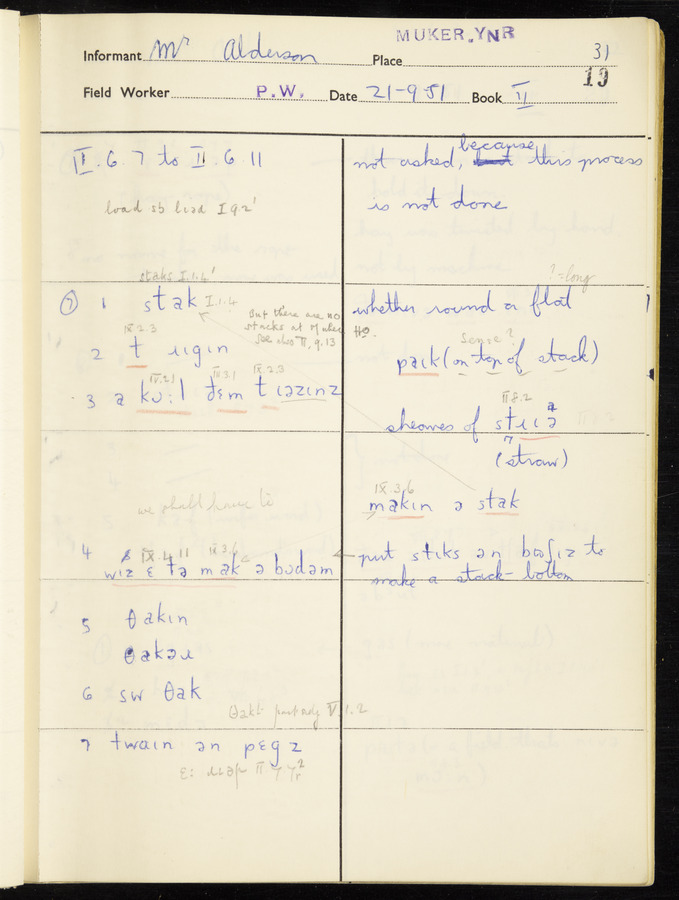 MUKER.YNR
Informant Mr Alderson Place 31
19
Field Worker P.W. Date 21-9-51 Book II
II.6.7 to II.6.11
not asked, because this process
is not done
load
staks I.1.4'
? = long
⑦ 1 stak I.1.4
But there are no
stacks at Muker
see also II.9.13
whether round or flat
IX.2.3
2 t ɹigin
sense?
paɪk (on top of stack)
IV.21 IV.3.1 IX.2.3
3 a kʊ:l ðɛm t ɪəzɪnz
II.8.2
sheaves of stɹiə
(straw)
IX.3.6
makɪn ə stak
we shall have to
IX.4.11 IX.3.6
4 wɪz ɛ tə mak ə bɒdəm
put stɪks ən bʊʃɪz to
make a stack-bottom
5 θakɪn
θakəɹ
6 sw θak
θakt V.1.2
7 twaɪn ən pɛgz